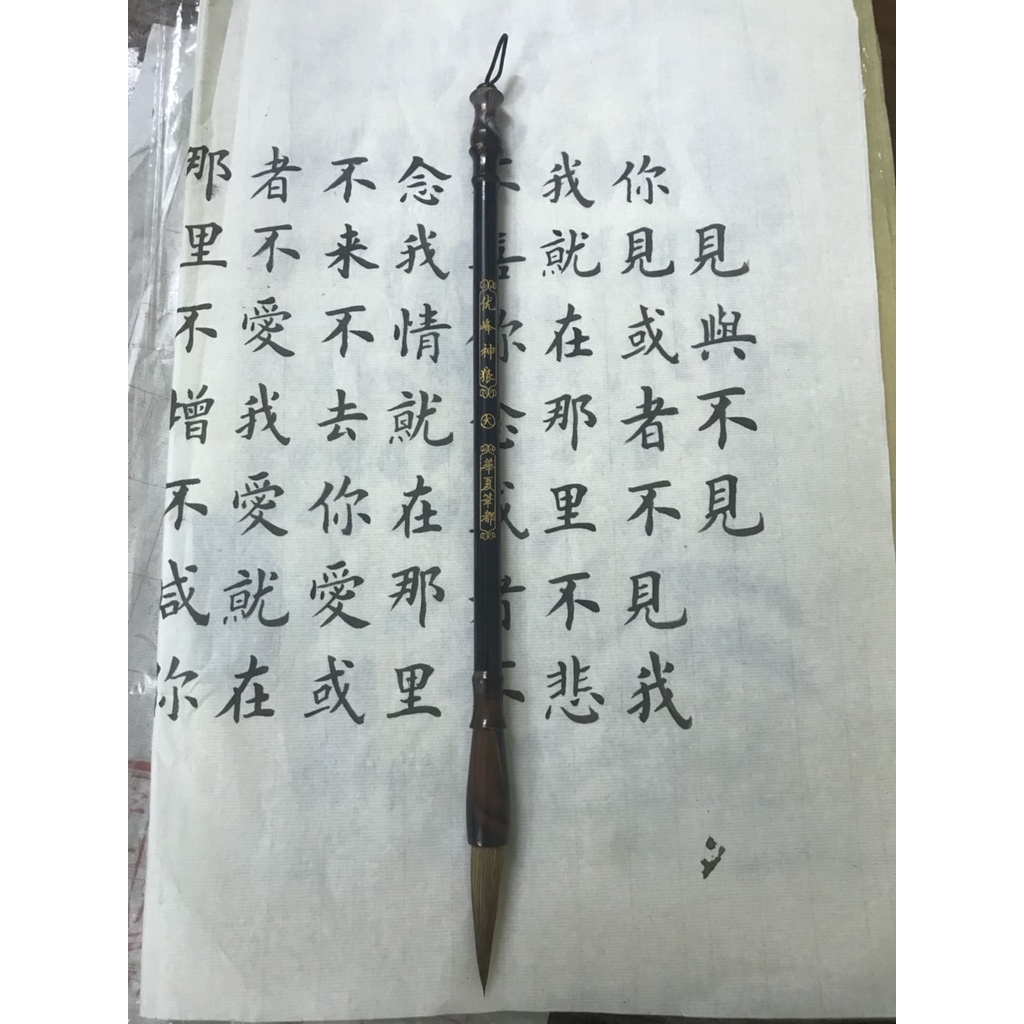 見與不見
你見或者不見我
我就在那里不悲
不喜你念或者不
念我情就在那里
不来不去你愛或
者不愛我愛就在
那里不增不咸你
优峰神狼
大
華夏筆都